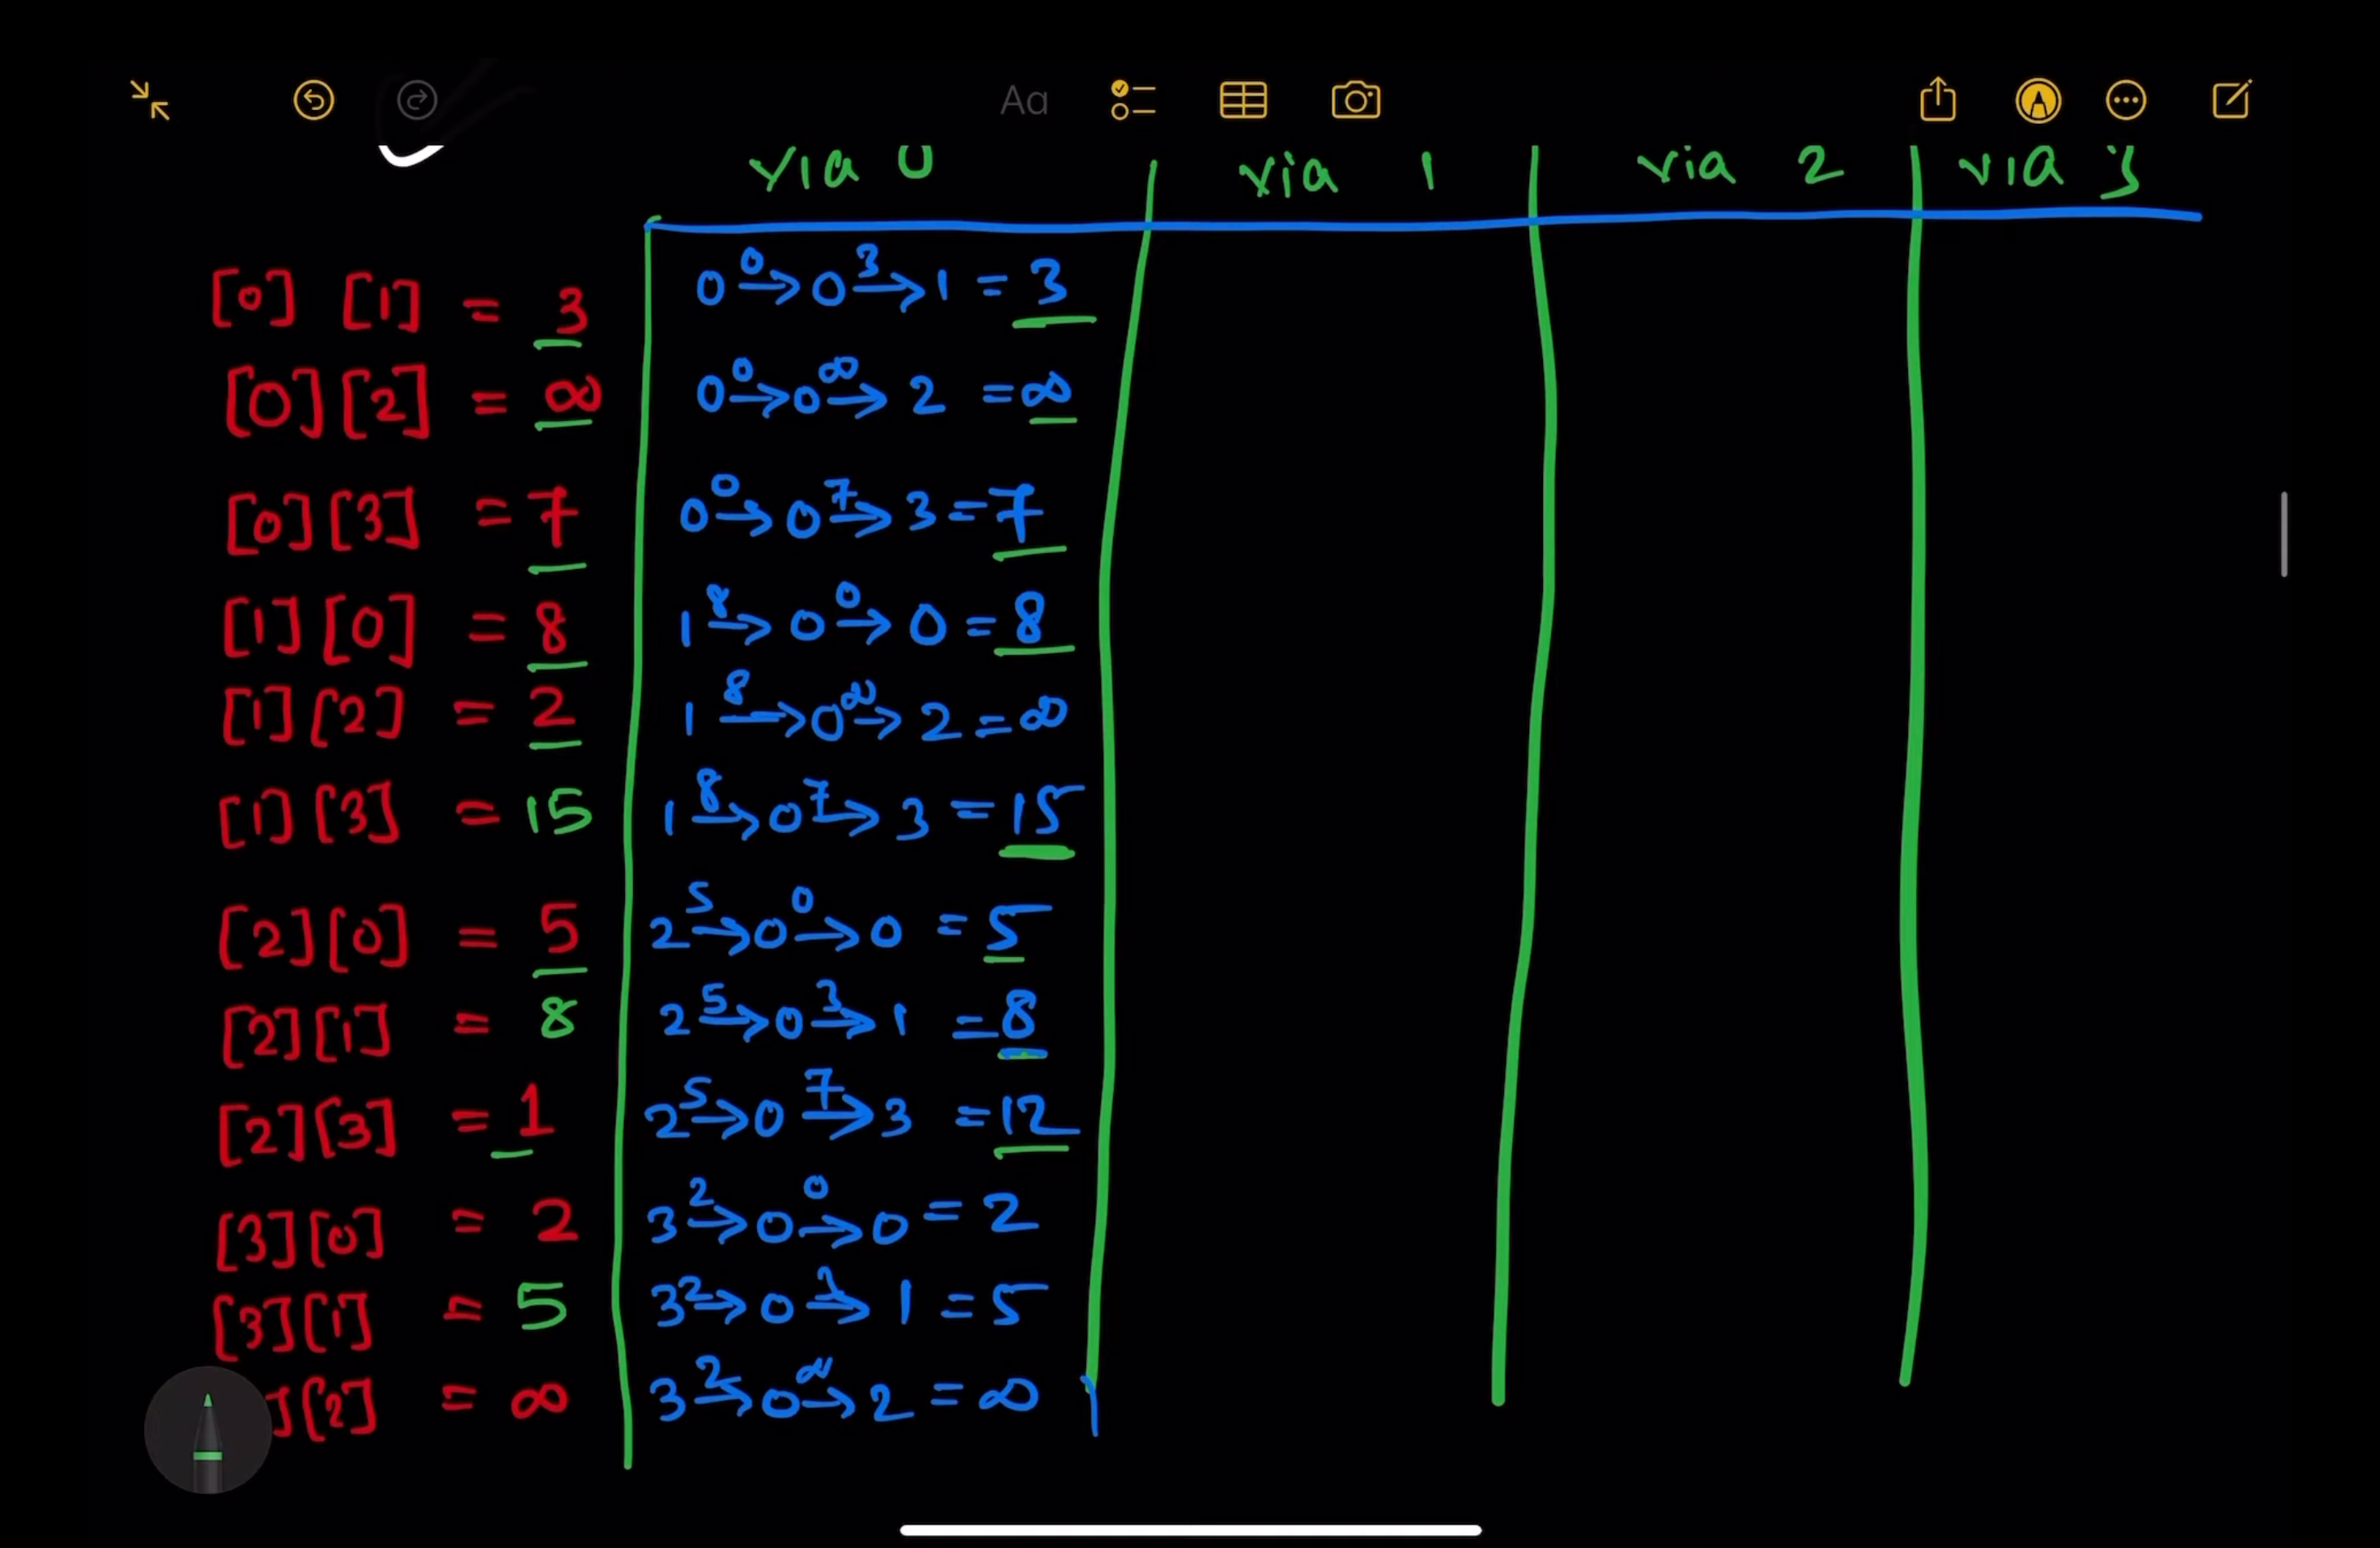 Aa
via 0 via 1 via 2 via 3
[0] [1] = 3 0 0→ 0 3→ 1 = 3
[0][2] = ∞ 0 0→ 0 ∞→ 2 = ∞
[0][3] = 7 0 0→ 0 7→ 3 = 7
[1][0] = 8 1 8→ 0 0→ 0 = 8
[1][2] = 2 1 8→ 0 ∞→ 2 = ∞
[1][3] = 15 1 8→ 0 7→ 3 = 15
[2][0] = 5 2 5→ 0 0→ 0 = 5
[2][1] = 8 2 5→ 0 3→ 1 = 8
[2][3] = 1 2 5→ 0 7→ 3 = 12
[3][0] = 2 3 2→ 0 0→ 0 = 2
[3][1] = 5 3 2→ 0 3→ 1 = 5
][2] = ∞ 3 2→ 0 ∞→ 2 = ∞